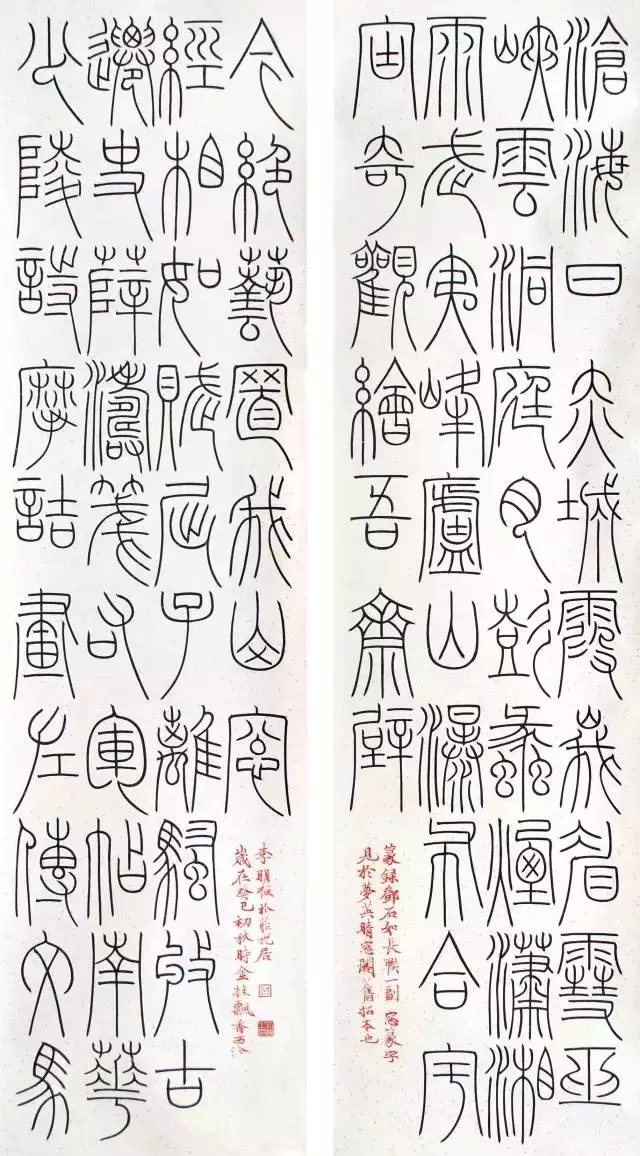 滄海日赤城霞峩眉雪巫
峽雲洞庭月彭蠡煙瀟湘
雨武夷峰廬山瀑布合宇
宙奇觀繪吾齋壁
篆録鄧石如長聯一副 窓篆字
見於夢英晴窓閣舊拓本也
少陵詩摩詰畫左傳文馬
遷史薛濤箋右軍帖南華
經相如賦屈子離騷收古
今絕藝置我山窗
歲在癸巳初秋時金桂飄香西泠
李明桓於居